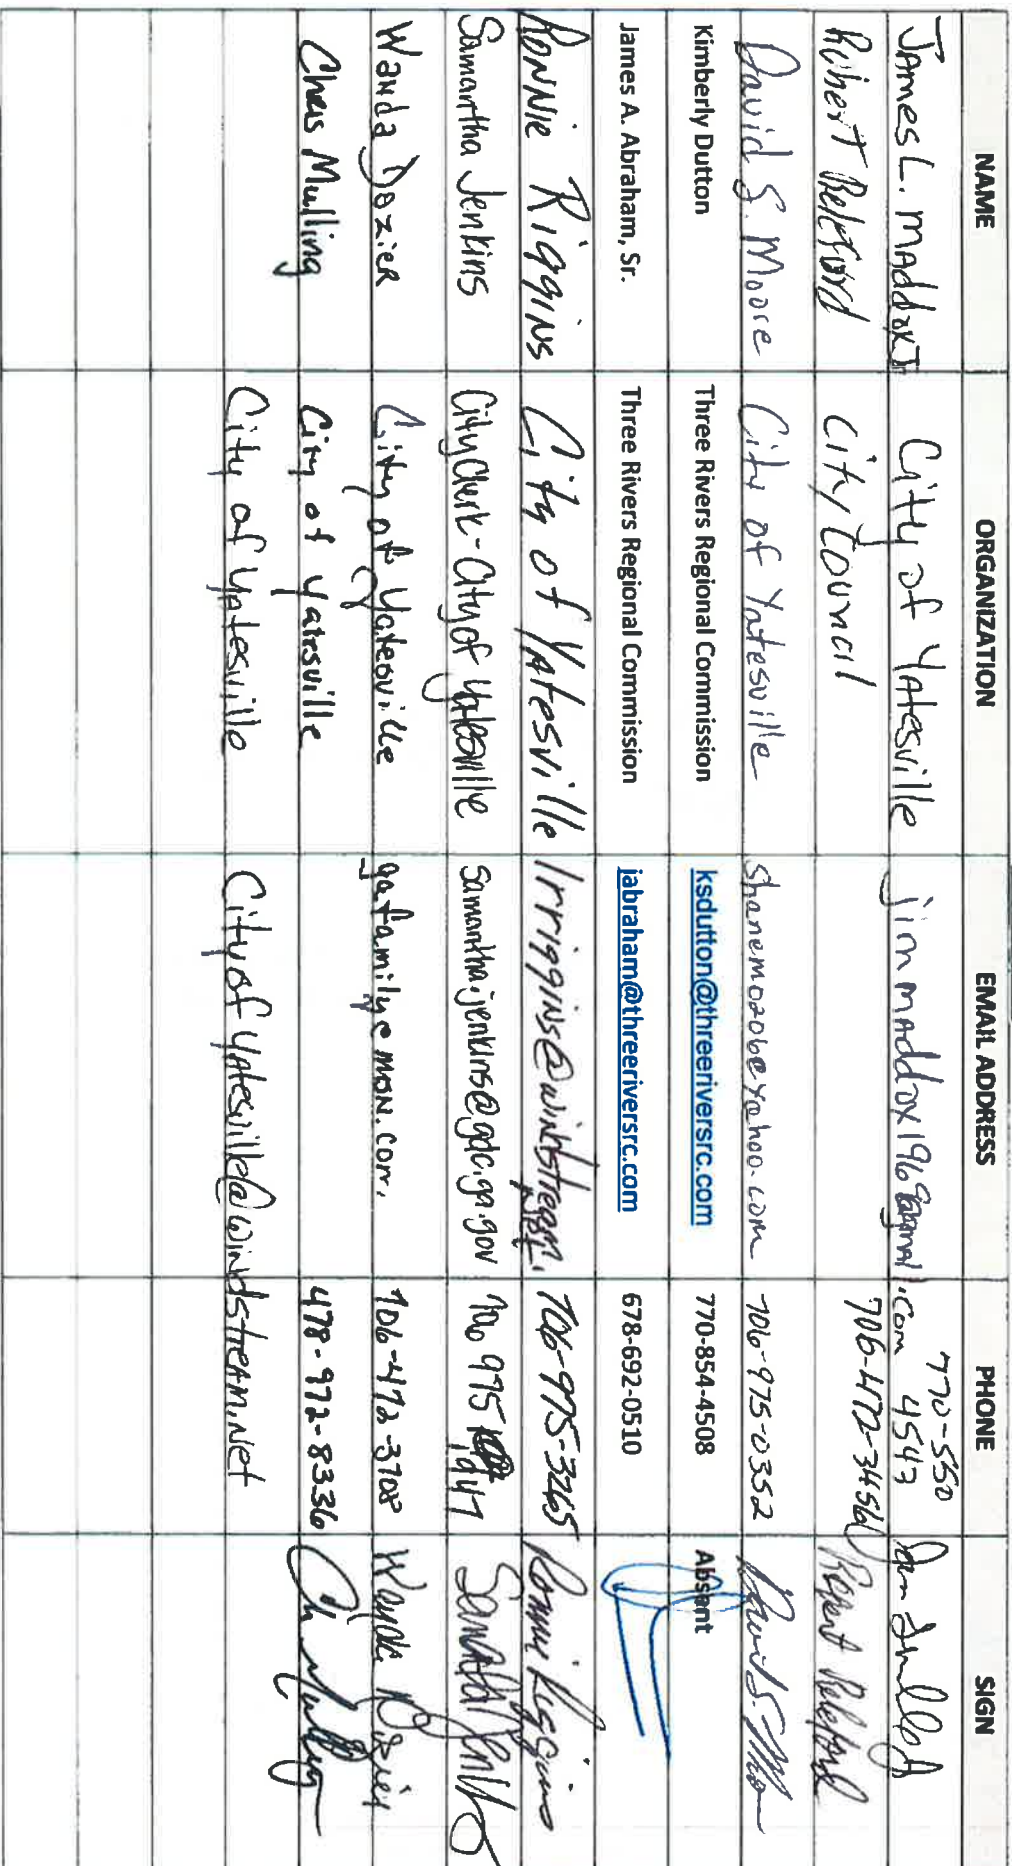 NAME ORGANIZATION EMAIL ADDRESS PHONE SIGN
James L. Maddox Jr City of Yatesville jinmaddox1968@gmail.com 770-550 4543
Robert Beleford City Council 706-472-3456 Robert Beleford
David S. Moore City of Yatesville shanemo206@yahoo.com 706-975-0352 David S. Moore
Kimberly Dutton Three Rivers Regional Commission ksdutton@threeriversrc.com 770-854-4508 Absent
James A. Abraham, Sr. Three Rivers Regional Commission jabraham@threeriversrc.com 678-692-0510
Ronnie Riggins City of Yatesville lrriggins@windstream.net 706-975-3265 Ronnie Riggins
Samantha Jenkins City Clerk-City of Yatesville samantha.jenkins@gdc.ga.gov 706 975 1947 Samantha Jenkins
Wanda Dozier City of Yatesville gafamily@msn.com. 706-472-3708 Wanda Dozier
Chris Mulling City of Yatesville 478-972-8336 Chris Mulling
City of Yatesville Cityofyatesville@windstream.net